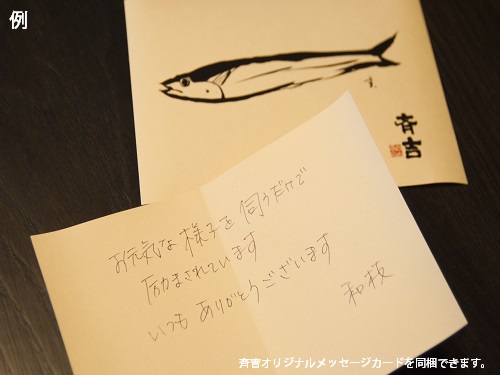 例
斉吉
お元気な様子を伺うだけで
励まされています
いつもありがとうございます
和枝
斉吉オリジナルメッセージカードを同梱できます。